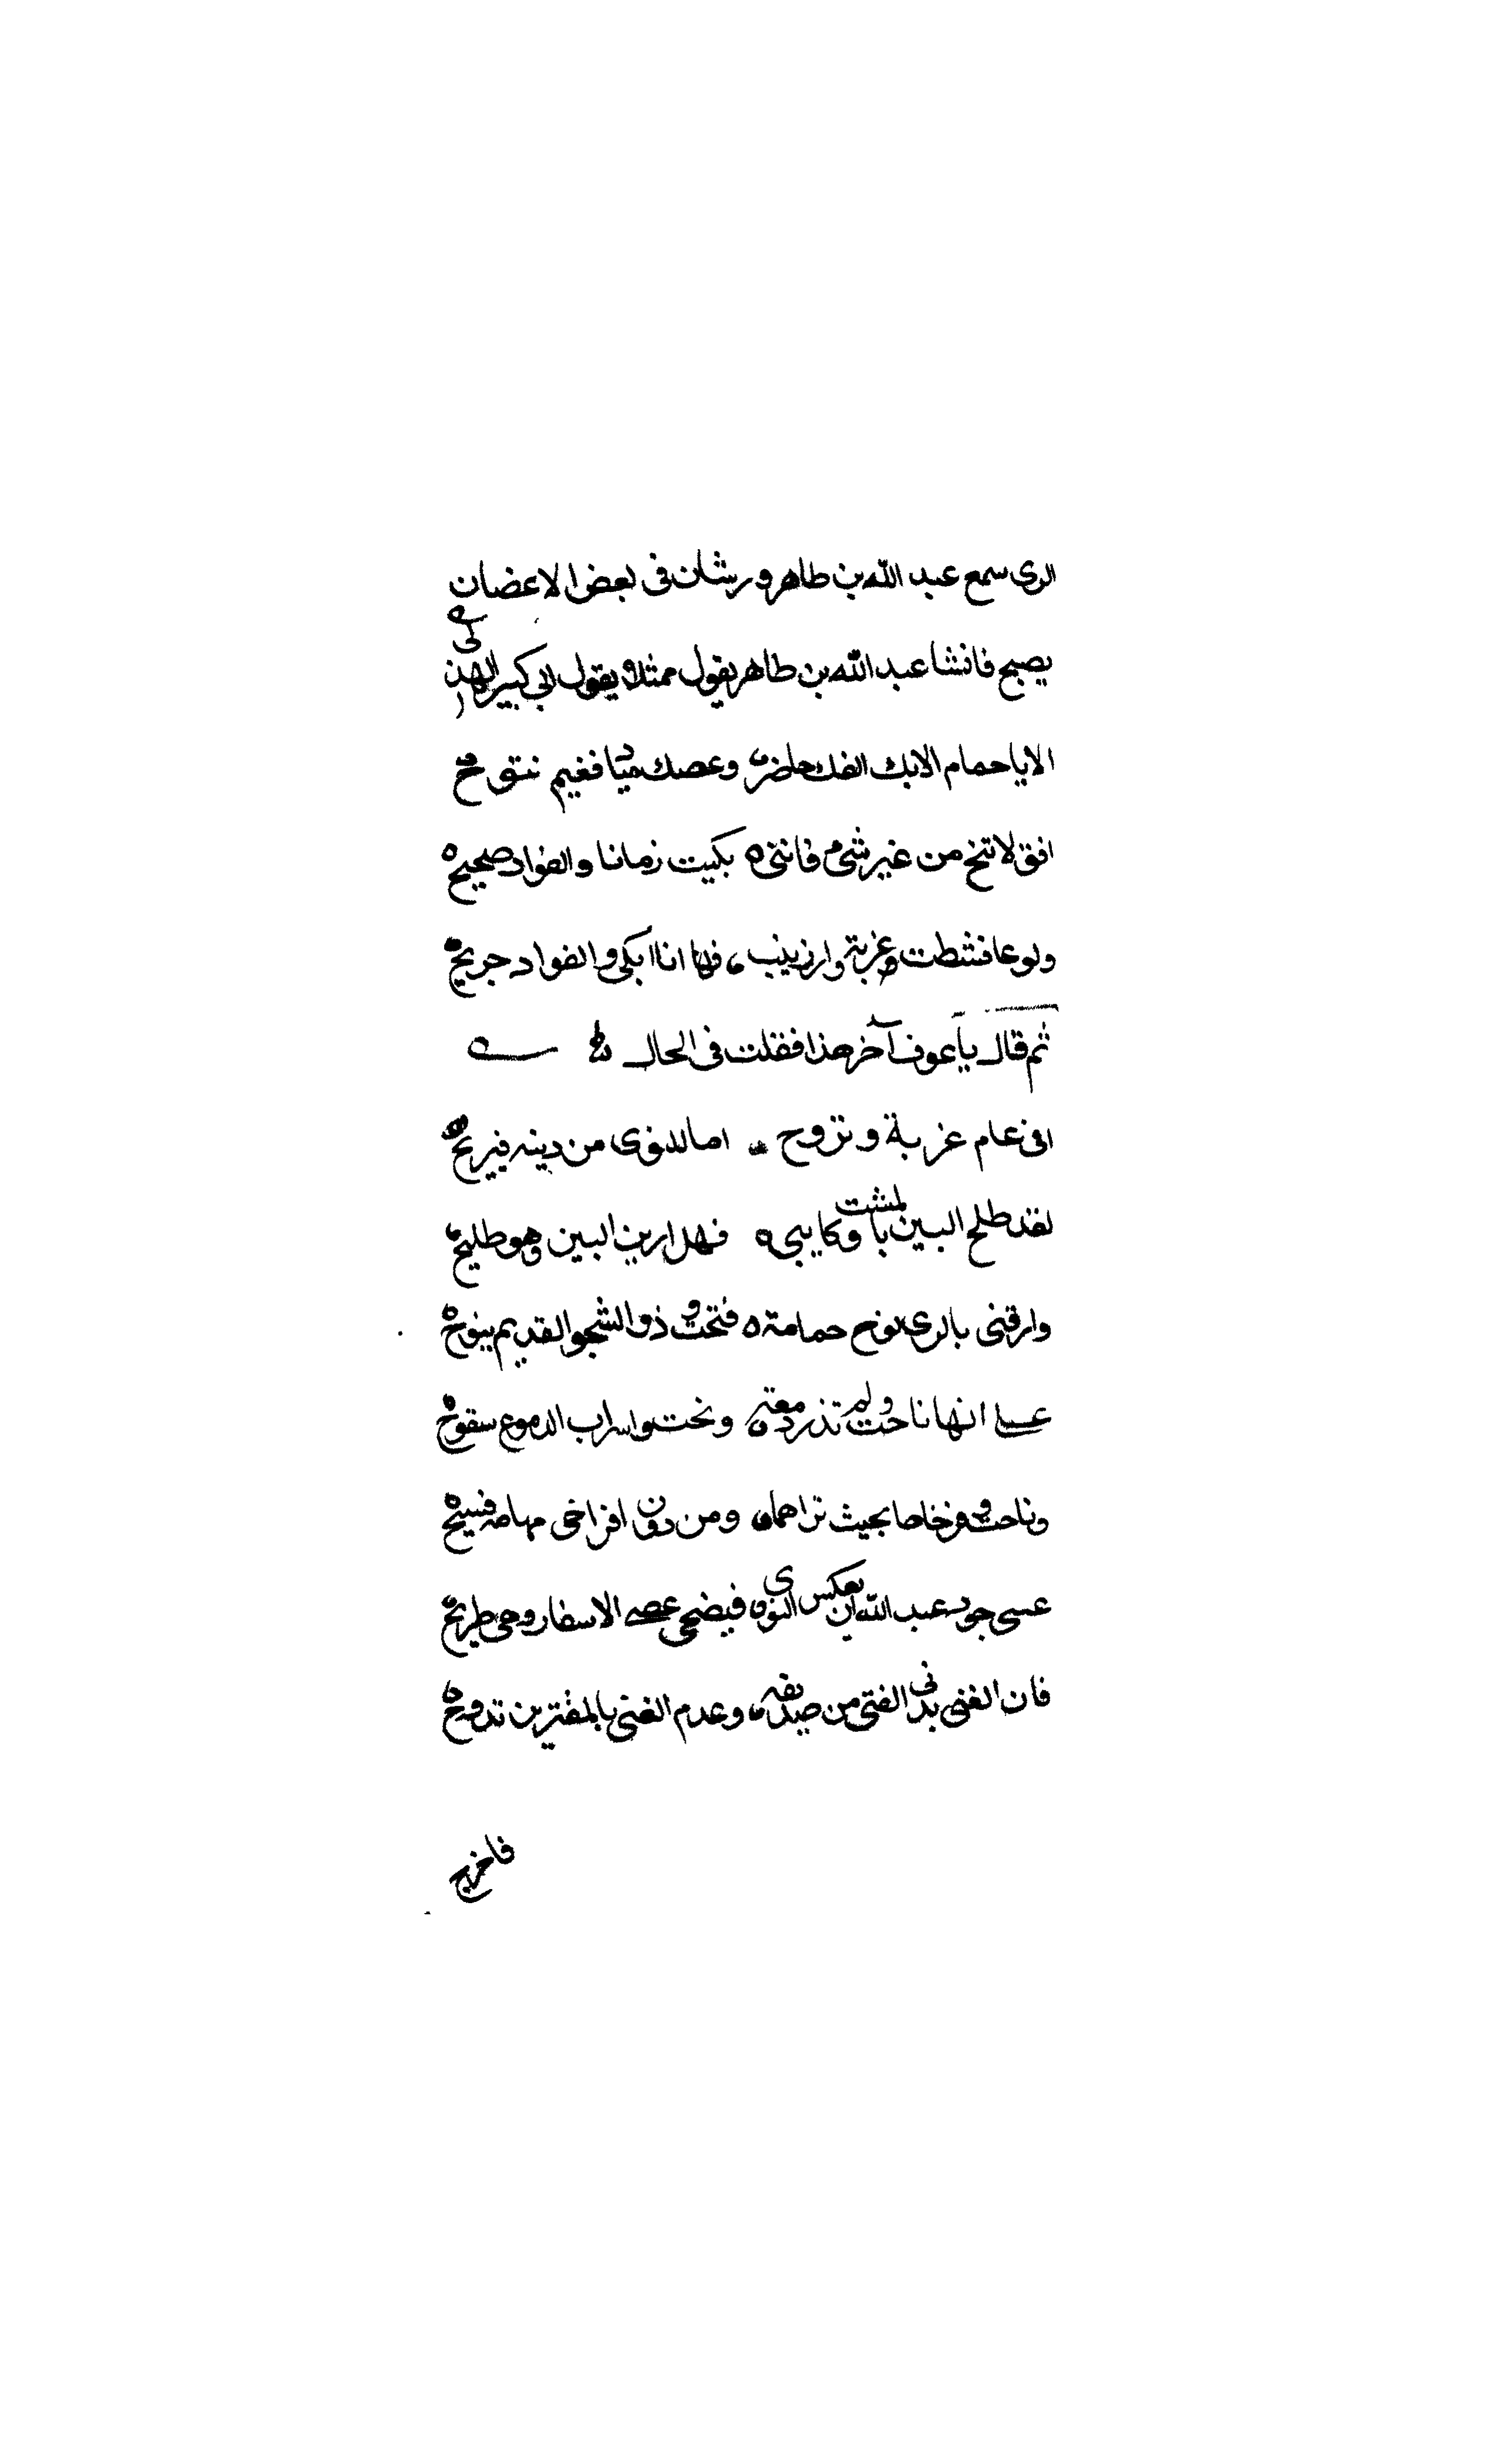 الرى سمع عبد الله بن طاهر ورشان فى بعض الاغضان
يصبح فانشا عبد الله بن طاهر يقول ممثلا بقول ابى كبير الهذلى
الا يا حمام الايك الفك حاضر وعصك مياد ففيم تنوح
افق لا تنح من غير شىء فاننى بكيت زمانا والفواد صحيح
ولوعا فشطت غربة دار زينب فها انا ابكى والفواد جريح
ثم قال يا عوف آخر هذا فقلت فى الحال
افى عام غربة ونزوح اما للنوى من دينه فيريح
لقد طلح البين المشت ركايبى فهل ارين البين وهو طليح
وارقنى بالرى نوح حمامة فنحت وذو الشجو القديم ينوح
على انها ناحت ولم تذر دمعة ونحت واسراب الدموع سفوح
وناحت وفرخاها بحيث تراهما ومن دون افراخى مهامه فسيح
عسى جود عبد الله ان يعكس النوى فيضحى عصى الاسفار وهى طريح
فان الغنى يدنى الفتى من صديقه وعدم الغنى بالمقترين تدوح